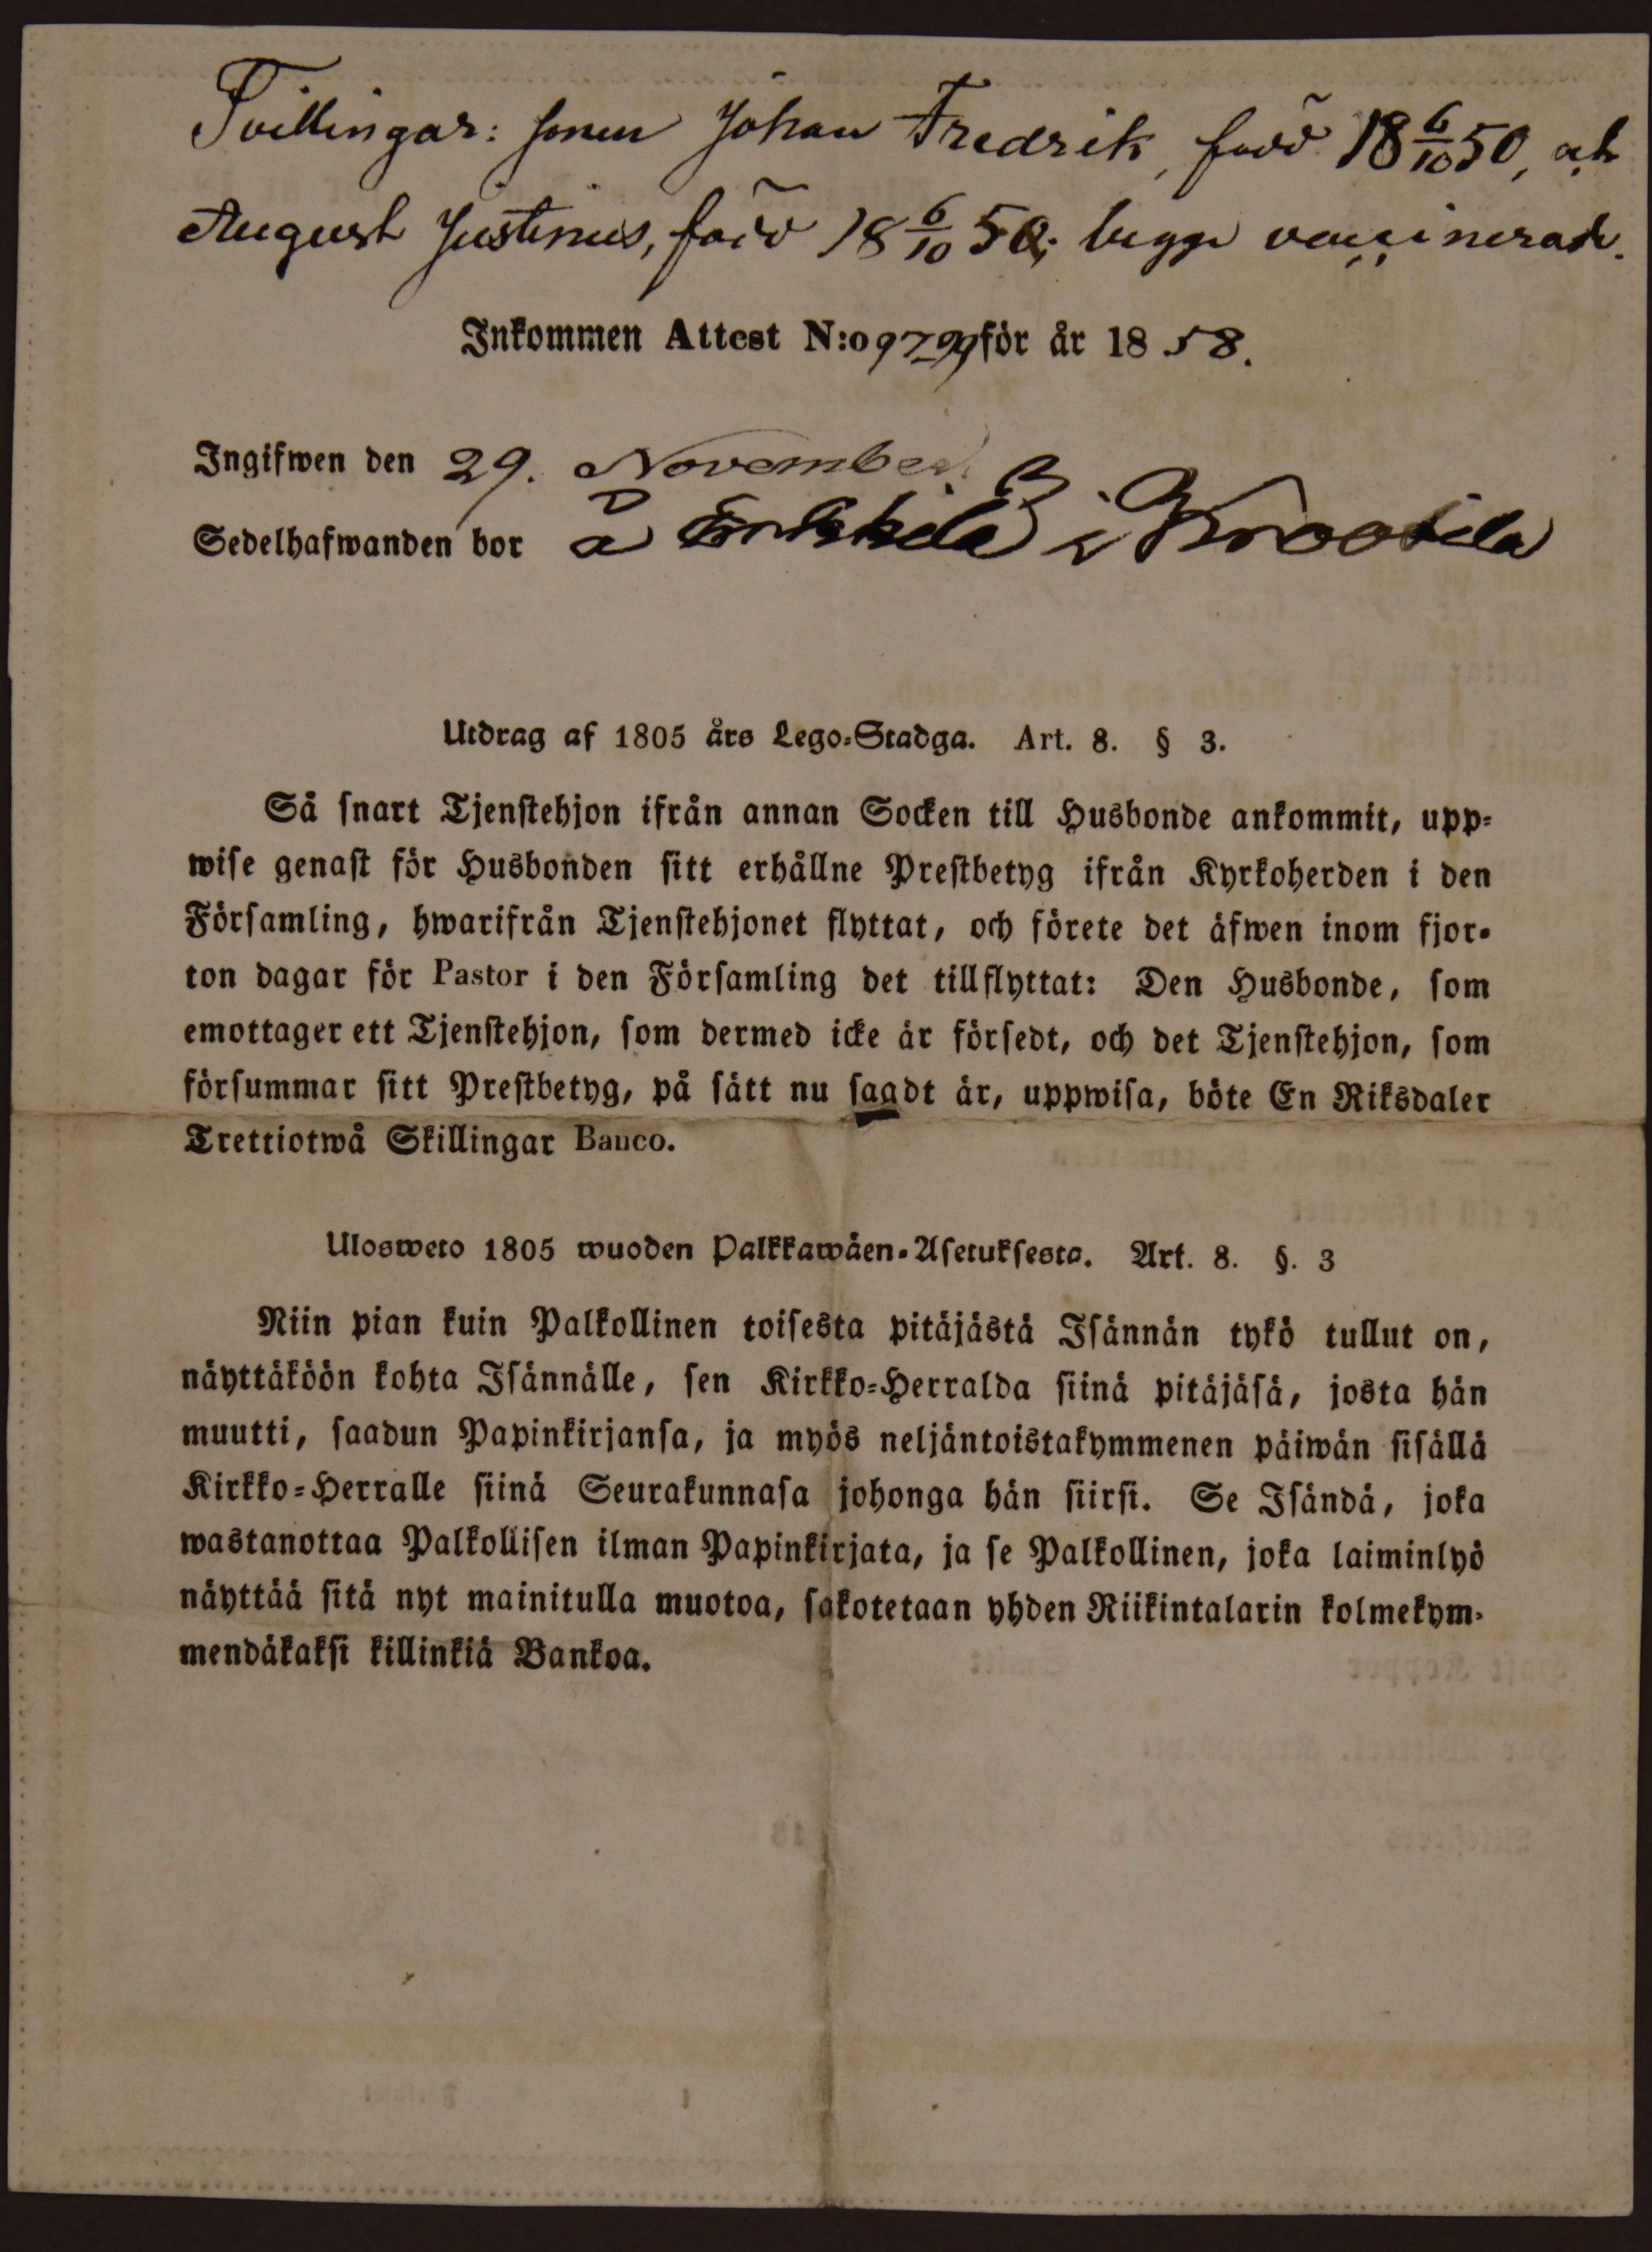 Tvillingar: sonen Johan Fredrik, född 18 6/10 50, och
August Justinus, född 18 6/10 50; begge vaccinerade.
Inkommen Attest N:o 97 för år 1858.
Ingifwen den 29. November.
Sedelhafwanden bor å i
Utdrag af 1805 års Lego-Stadga. Art. 8. § 3.
Så snart Tjenstehjon ifrån annan Socken till Husbonde ankommit, upp-
wise genast för Husbonden sitt erhållne Prestbetyg ifrån Kyrkoherden i den
Församling, hwarifrån Tjenstehjonet flyttat, och förete det äfwen inom fjor-
ton dagar för Pastor i den Församling det tillflyttat: Den Husbonde, som
emottager ett Tjenstehjon, som dermed icke är försedt, och det Tjenstehjon, som
försummar sitt Prestbetyg, på sätt nu sagdt är, uppwisa, böte En Riksdaler
Trettiotwå Skillingar Banco.
Ulosweto 1805 wuoden Palkkawäen-Asetuksesta. Art. 8. §. 3
Niin pian kuin Palkollinen toisesta pitäjästä Isännän tykö tullut on,
näyttäköön kohta Isännälle, sen Kirkko-Herralda siinä pitäjäsä, josta hän
muutti, saadun Papinkirjansa, ja myös neljäntoistakymmenen päiwän sisällä
Kirkko-Herralle siinä Seurakunnasa johonga hän siirsi. Se Isändä, joka
wastanottaa Palkollisen ilman Papinkirjata, ja se Palkollinen, joka laiminlyö
näyttää sitä nyt mainitulla muotoa, sakotetaan yhden Riikintalarin kolmekym-
mendäkaksi killinkiä Bankoa.